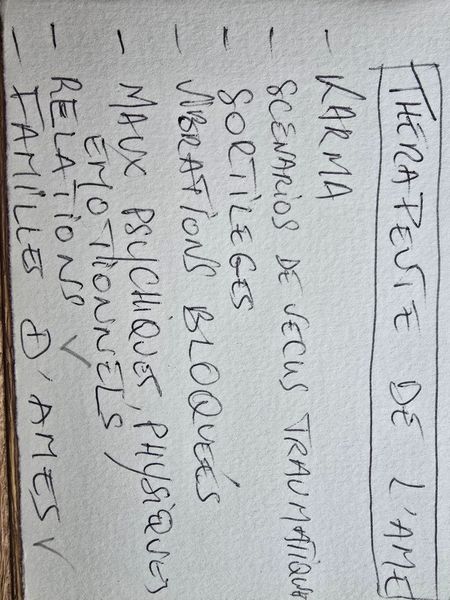 THERAPEUTE DE L'AME
- KARMA
- SCENARIOS DE VECUS TRAUMATIQUES
- SORTILEGES
- VIBRATIONS BLOQUEÉS
- MAUX PSYCHIQUES, PHYSIQUES
EMOTIONNELS /
- RELATIONS ✓
- FAMILLES D'AMES ✓